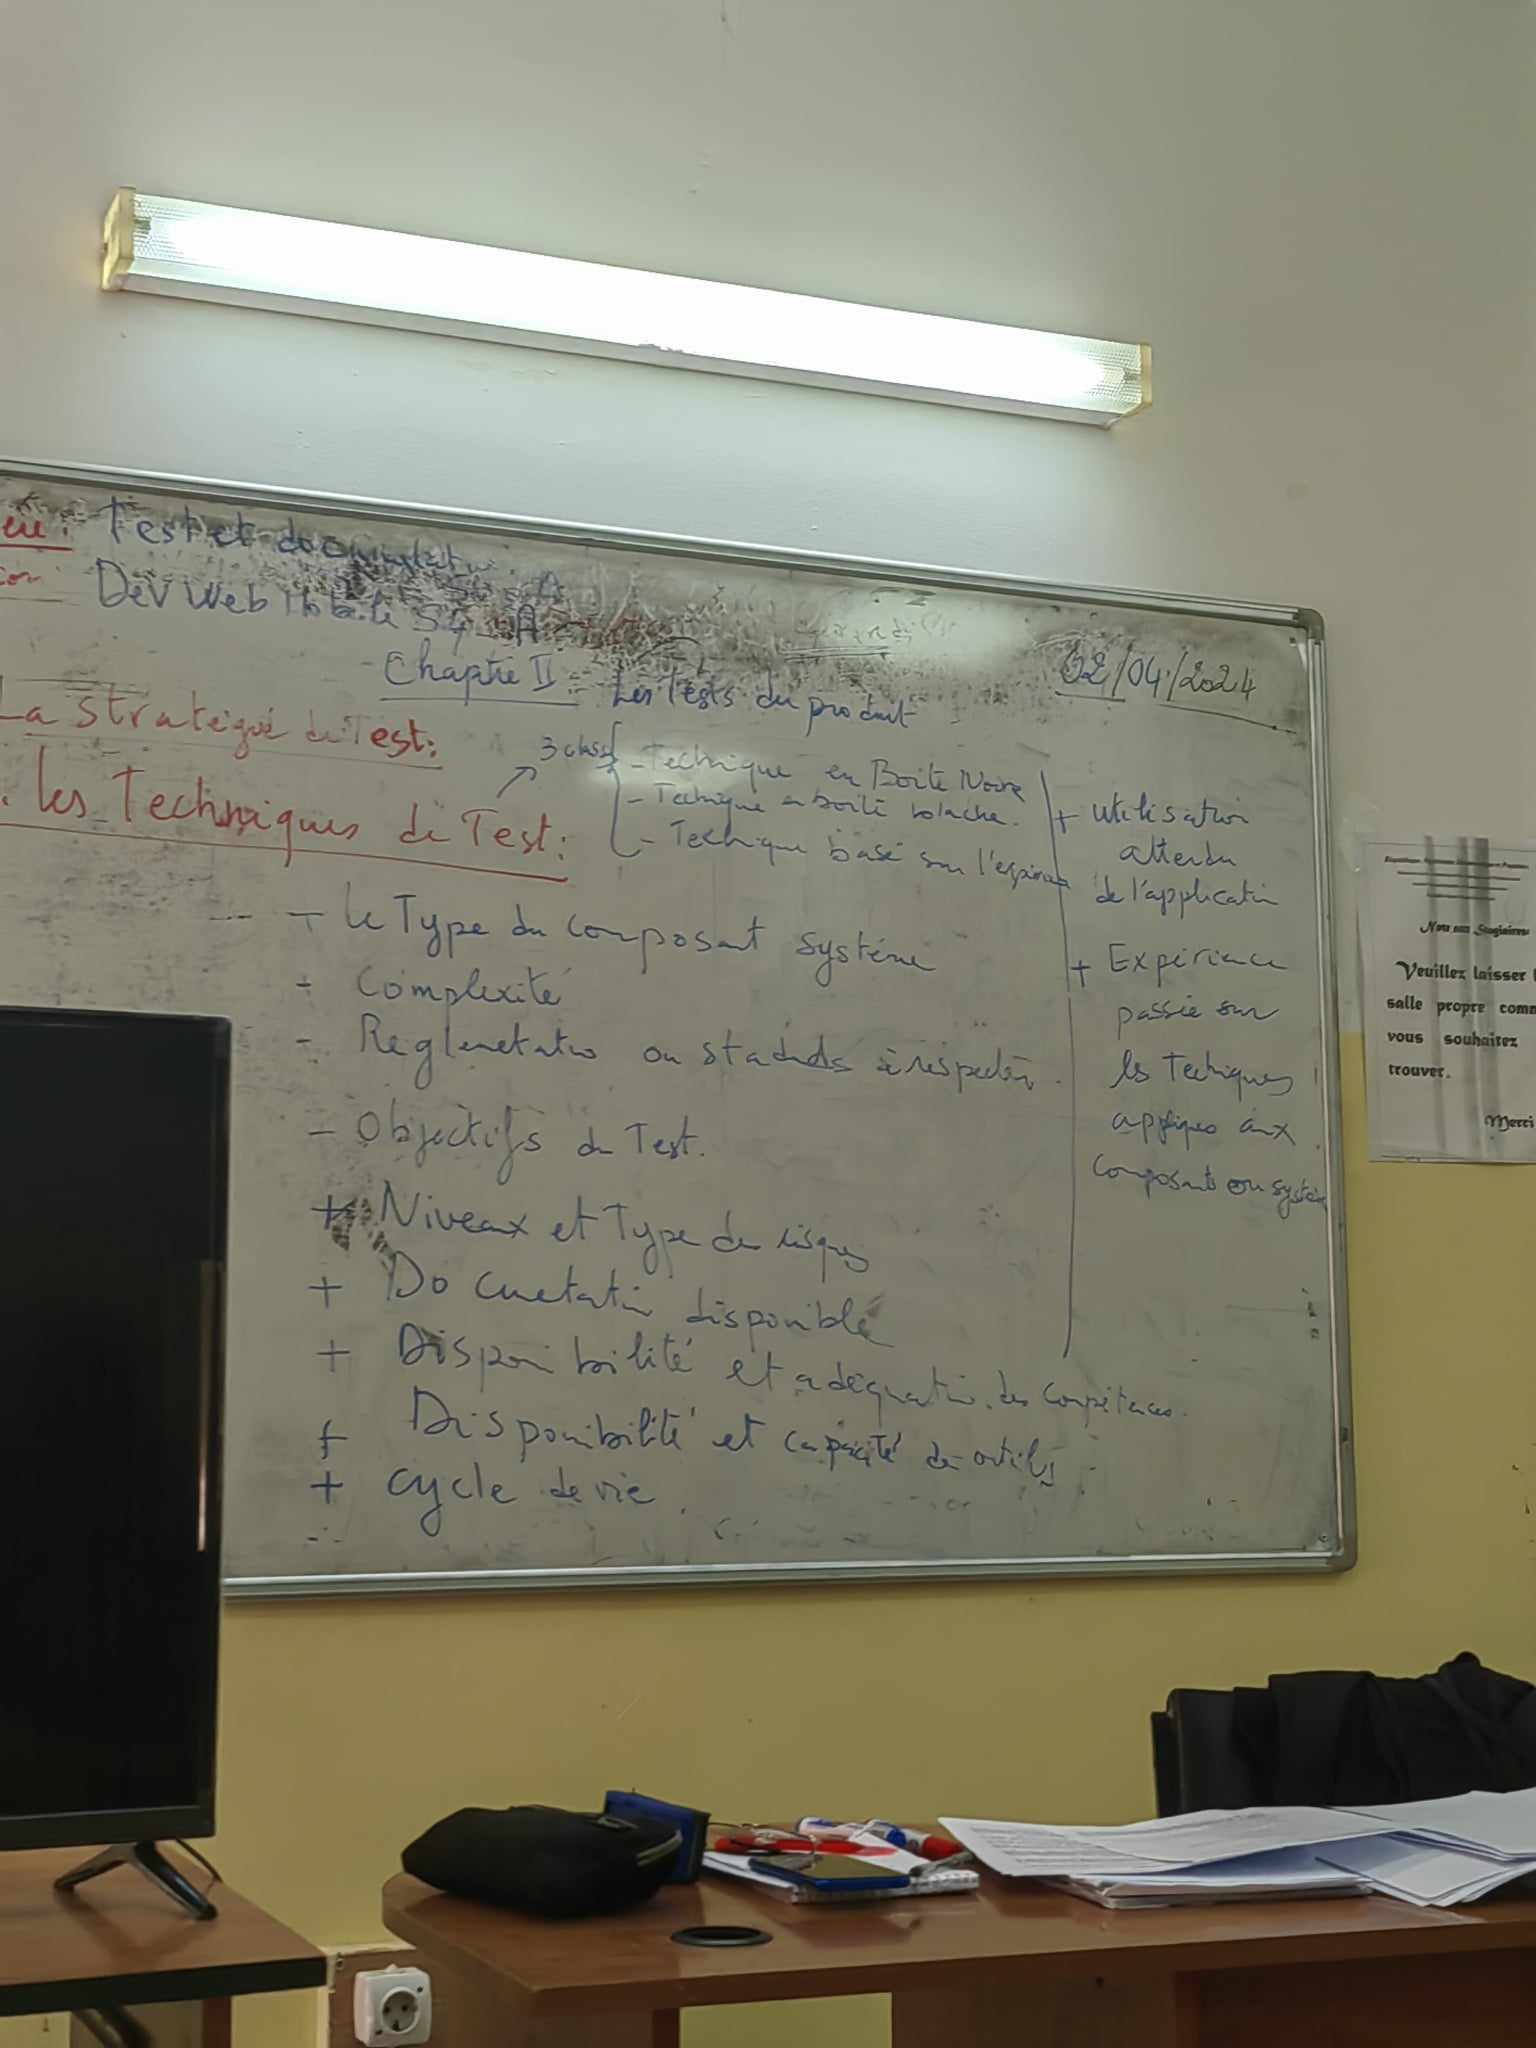 Test et documtatio
Dev Web Mobile S4 A
02/04/2024
Chapitre II : Les Tests du produit
La stratégie de Test:
les Techniques de Test:
3 class
- Technique en Boite Noire
- Technique en boite blache.
- Technique basé sur l'experience
- le Type du composant système
- Complexité
- Reglemetatio ou stadards à respecter.
- Objectifs du Test.
+ Niveaux et Type des risques
+ Documetation disponible
+ Disponibilité et adéquation des compétences.
+ Disponibilité et capacité de outils
+ cycle de vie.
+ Utilisation
attendu
de l'application
+ Expérience
passée sur
les Techniques
appliqes aux
composants ou système
Note aux Stagiaires
Veuillez laisser
salle propre comm
vous souhaitez
trouver.
Merci